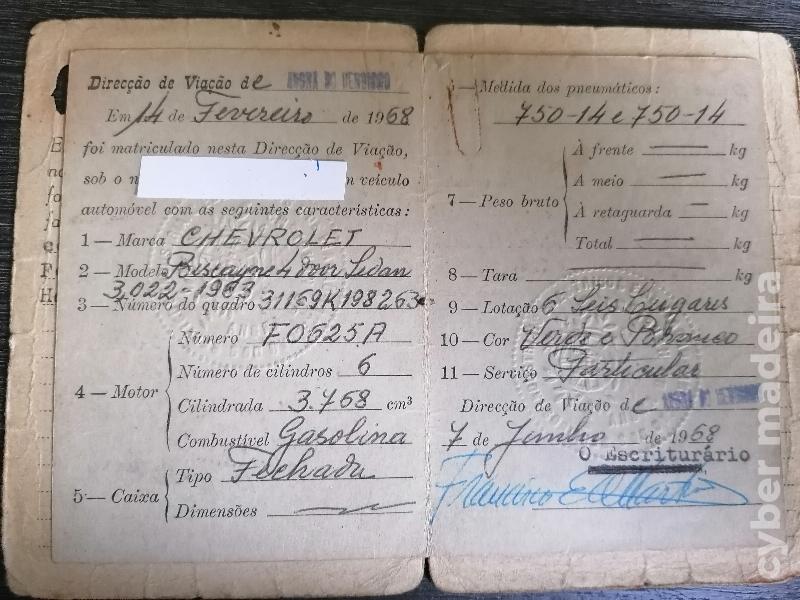 Direcção de Viação de ANGRA DO HEROISMO
Em 14 de Fevereiro de 1968
foi matriculado nesta Direcção de Viação,
sob o n veículo
automóvel com as seguintes características:
1 — Marca CHEVROLET
2 — Modelo Biscayne 4 door Sedan
3.022-1963
3 — Número do quadro 31169K198263
4 — Motor
Número F0625A
Número de cilindros 6
Cilindrada 3.768 cm³
Combustível Gasolina
5 — Caixa
Tipo Fechada
Dimensões
6 — Medida dos pneumáticos:
750-14 e 750-14
7 — Peso bruto
À frente kg
A meio kg
À retaguarda kg
Total kg
8 — Tara kg
9 — Lotação 6 Seis Lugares
10 — Cor Verde e Branco
11 — Serviço Particular
Direcção de Viação de ANGRA DO HEROISMO
7 de Junho de 1968
O Escriturário
Francisco
cyber madeira